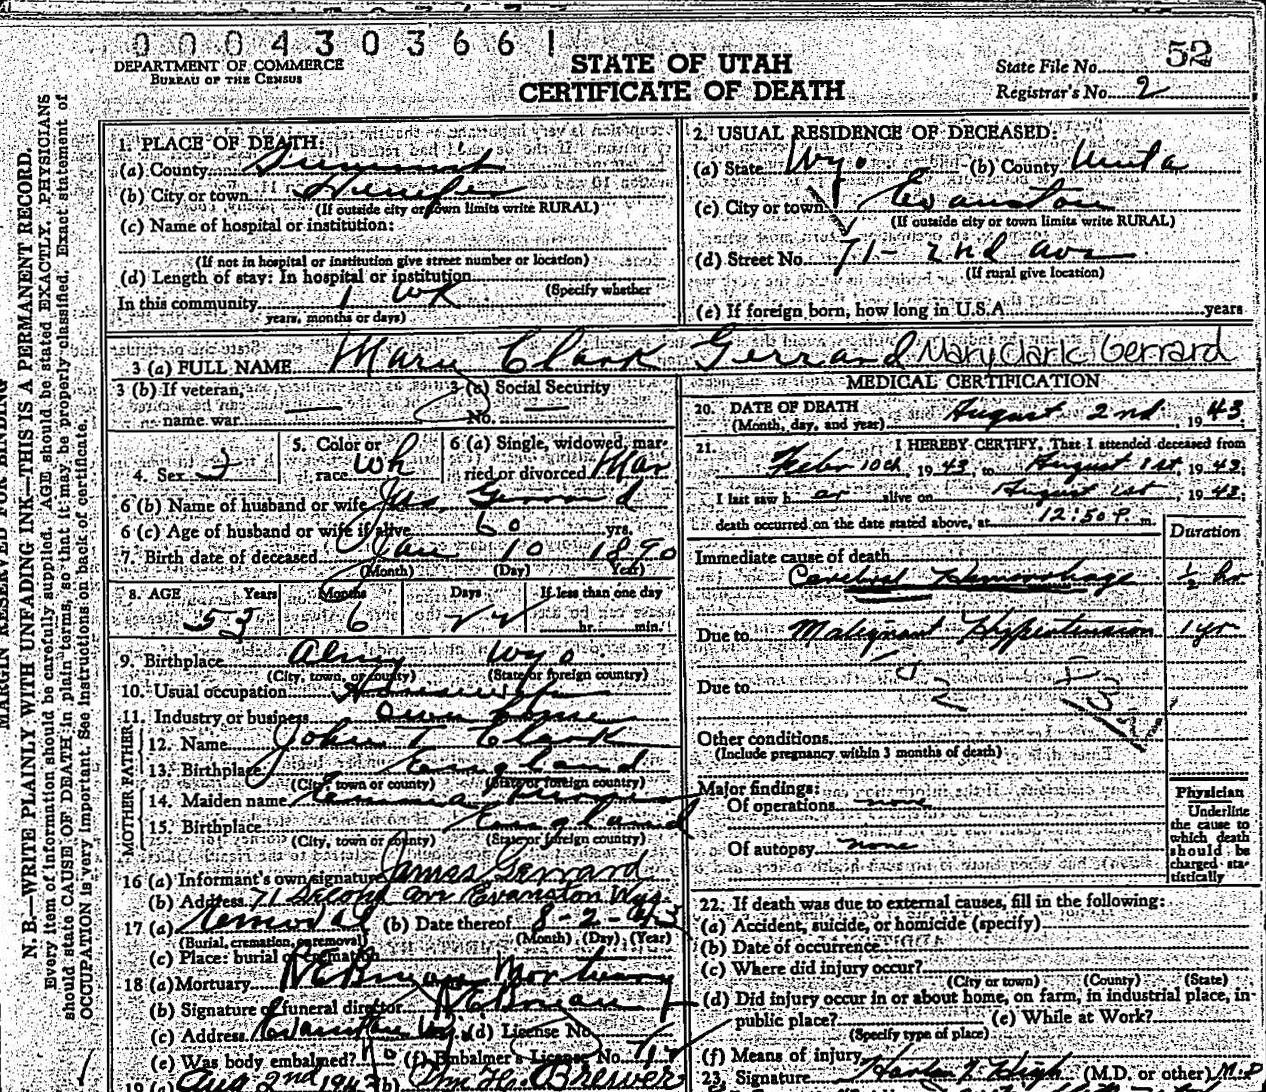 0 0 0 4 3 0 3 6 6 1
DEPARTMENT OF COMMERCE
BUREAU OF THE CENSUS
STATE OF UTAH
CERTIFICATE OF DEATH
State File No. 52
Registrar's No. 2
MARGIN RESERVED FOR BINDING
N. B.—WRITE PLAINLY WITH UNFADING INK—THIS IS A PERMANENT RECORD.
Every item of information should be carefully supplied. AGE should be stated EXACTLY. PHYSICIANS
should state CAUSE OF DEATH in plain terms, so that it may be properly classified. Exact statement of
OCCUPATION is very important. See instructions on back of certificate.
1. PLACE OF DEATH:
(a) County Summit
(b) City or town
(If outside city or town limits write RURAL)
(c) Name of hospital or institution:
(If not in hospital or institution give street number or location)
(d) Length of stay: In hospital or institution
(Specify whether
In this community 1 wk
years, months or days)
2. USUAL RESIDENCE OF DECEASED:
(a) State Wyo (b) County Uinta
(c) City or town Evanston
(If outside city or town limits write RURAL)
(d) Street No. 71 - 2nd ave
(If rural give location)
(e) If foreign born, how long in U.S.A. years
3 (a) FULL NAME Mary Clark Gerrard Mary Clark Gerrard
3 (b) If veteran, name war —
3 (c) Social Security No. —
4. Sex F
5. Color or race Wh
6 (a) Single, widowed, married or divorced Mar
6 (b) Name of husband or wife Jas. Gerrard
6 (c) Age of husband or wife if alive 60 yrs.
7. Birth date of deceased Jan 10 1890
(Month) (Day) (Year)
8. AGE Years Months Days If less than one day
53 6 22 hr. min.
9. Birthplace Almy Wyo.
(City, town, or county) (State or foreign country)
10. Usual occupation Housewife
11. Industry or business Own home
FATHER
12. Name John T Clark
13. Birthplace England
(City, town or county) (State or foreign country)
MOTHER
14. Maiden name Emma
15. Birthplace England
(City, town or county) (State or foreign country)
16 (a) Informant's own signature James Gerrard
(b) Address 71 Second ave Evanston Wyo.
17 (a) Removal (b) Date thereof 8-2-43
(Burial, cremation, or removal) (Month) (Day) (Year)
(c) Place: burial or cremation
18 (a) Mortuary Mortuary
(b) Signature of funeral director
(c) Address Evanston Wyo. (d) License No.
(e) Was body embalmed? no (f) Embalmer's License No.
19 (a) Aug 2nd 1943 (b) Wm H. Brewer
MEDICAL CERTIFICATION
20. DATE OF DEATH
(Month, day, and year) August 2nd, 1943.
21. I HEREBY CERTIFY, That I attended deceased from
Febr 10th, 1943, to August 1st, 1943;
I last saw her alive on August 1st, 1943;
death occurred on the date stated above, at 12:50 P. m.
Duration
Immediate cause of death
Cerebral Hemorrhage ½ hr
Due to Malignant Hypertension 1 yr
Due to
Other conditions
(Include pregnancy within 3 months of death)
Major findings:
Of operations none
Of autopsy none
Physician
Underline
the cause to
which death
should be
charged sta-
tistically
22. If death was due to external causes, fill in the following:
(a) Accident, suicide, or homicide (specify)
(b) Date of occurrence
(c) Where did injury occur?
(City or town) (County) (State)
(d) Did injury occur in or about home, on farm, in industrial place, in
public place? (e) While at Work?
(Specify type of place)
(f) Means of injury
23. Signature (M.D. or other) M.D